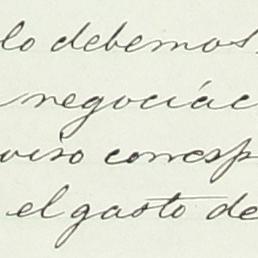 lo debemos
negociác
viso corresp
el gasto de